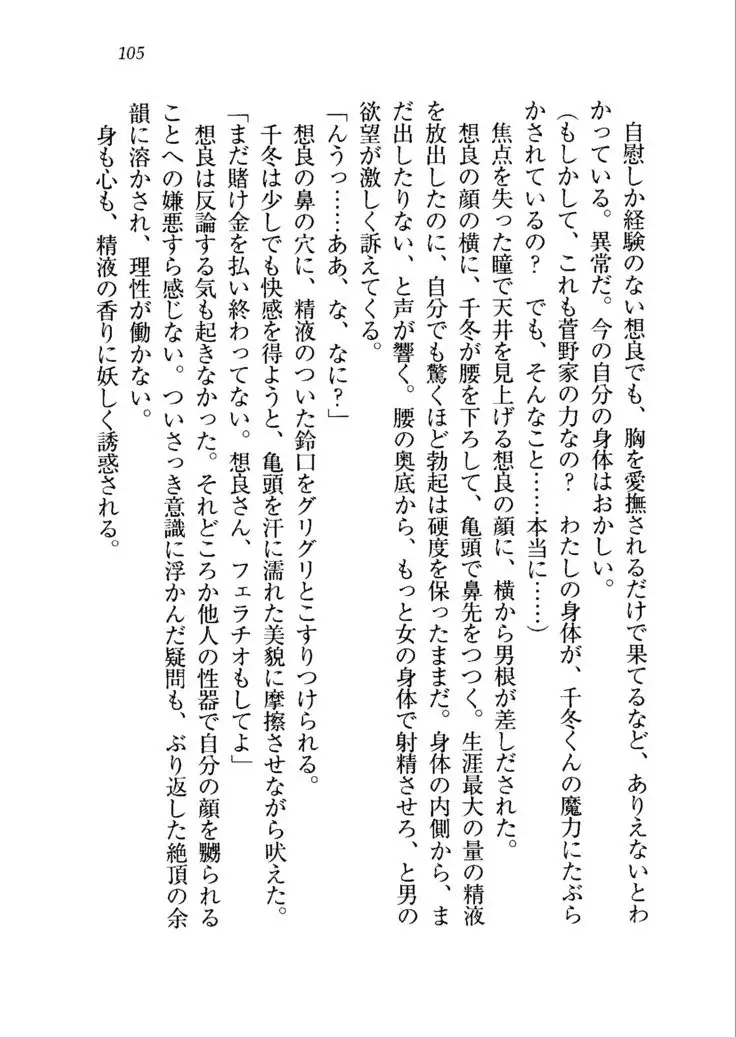 105
自慰しか経験のない想良でも、胸を愛撫されるだけで果てるなど、ありえないとわ
かっている。異常だ。今の自分の身体はおかしい。
(もしかして、これも菅野家の力なの? わたしの身体が、千冬くんの魔力にたぶら
かされているの? でも、そんなこと……本当に……)
焦点を失った瞳で天井を見上げる想良の顔に、横から男根が差しだされた。
想良の顔の横に、千冬が腰を下ろして、亀頭で鼻先をつつく。生涯最大の量の精液
を放出したのに、自分でも驚くほど勃起は硬度を保ったままだ。身体の内側から、ま
だ出したりない、と声が響く。腰の奥底から、もっと女の身体で射精させろ、と男の
欲望が激しく訴えてくる。
「んうっ……ああ、な、なに?」
想良の鼻の穴に、精液のついた鈴口をグリグリとこすりつけられる。
千冬は少しでも快感を得ようと、亀頭を汗に濡れた美貌に摩擦させながら吠えた。
「まだ賭け金を払い終わってない。想良さん、フェラチオもしてよ」
想良は反論する気も起きなかった。それどころか他人の性器で自分の顔を嬲られる
ことへの嫌悪すら感じない。ついさっき意識に浮かんだ疑問も、ぶり返した絶頂の余
韻に溶かされ、理性が働かない。
身も心も、精液の香りに妖しく誘惑される。